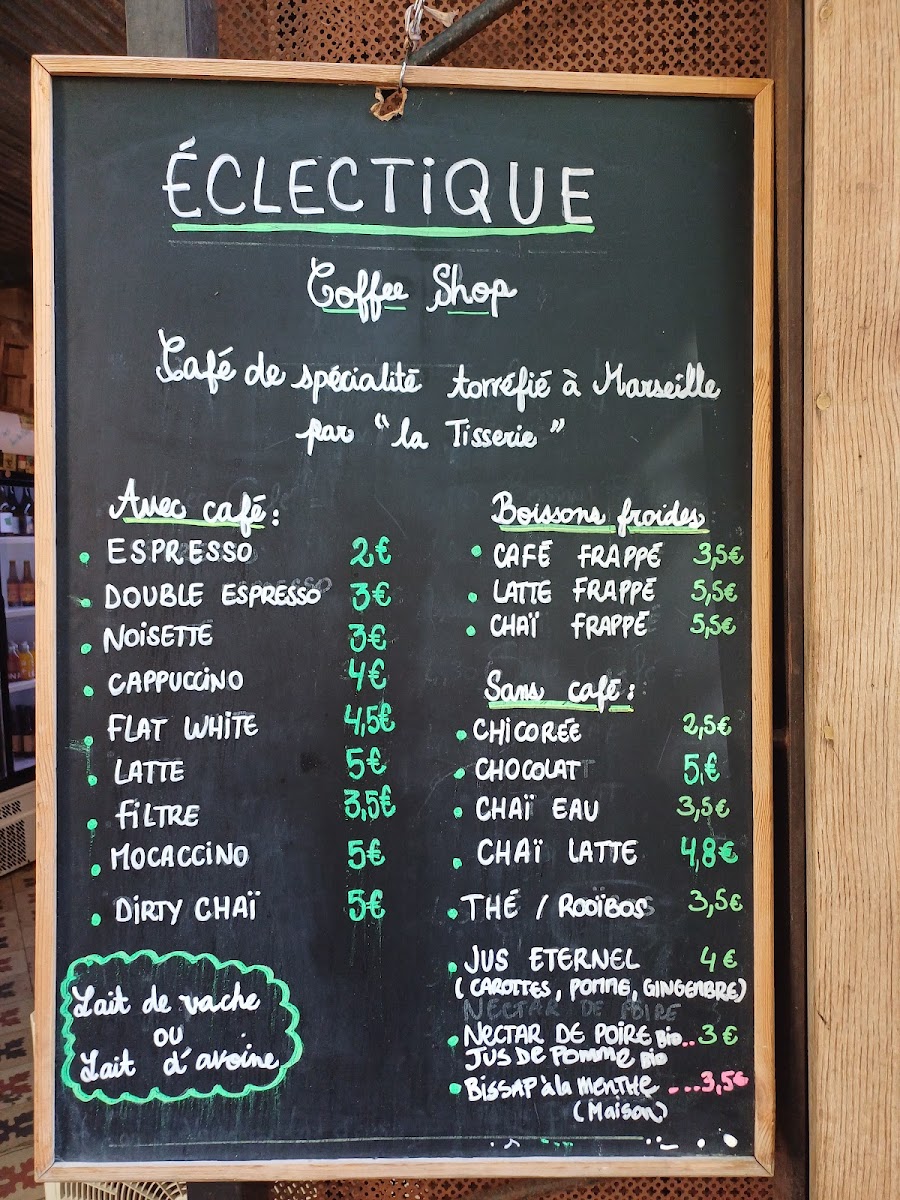 ÉCLECTiQUE
Coffee Shop
Café de spécialité torréfié à Marseille
par "la Tisserie"
Avec café :
ESPRESSO 2€
DOUBLE ESPRESSO 3€
NOISETTE 3€
CAPPUCCINO 4€
FLAT WHITE 4,5€
LATTE 5€
FILTRE 3,5€
MOCACCINO 5€
DIRTY CHAÏ 5€
Lait de vache
OU
Lait d'avoine
Boissons froides
CAFÉ FRAPPÉ 3,5€
LATTE FRAPPÉ 5,5€
CHAÏ FRAPPÉ 5,5€
Sans café :
CHICORÉE 2,5€
CHOCOLAT 5,€
CHAÏ EAU 3,5€
CHAÏ LATTE 4,8€
THÉ / ROOÏBOS 3,5€
JUS ETERNEL 4€
(CAROTTES, POMME, GINGEMBRE)
NECTAR DE POIRE
NECTAR DE POIRE Bio.. 3€
JUS DE POMME Bio
BISSAP à la MENTHE ....3,5€
(Maison)